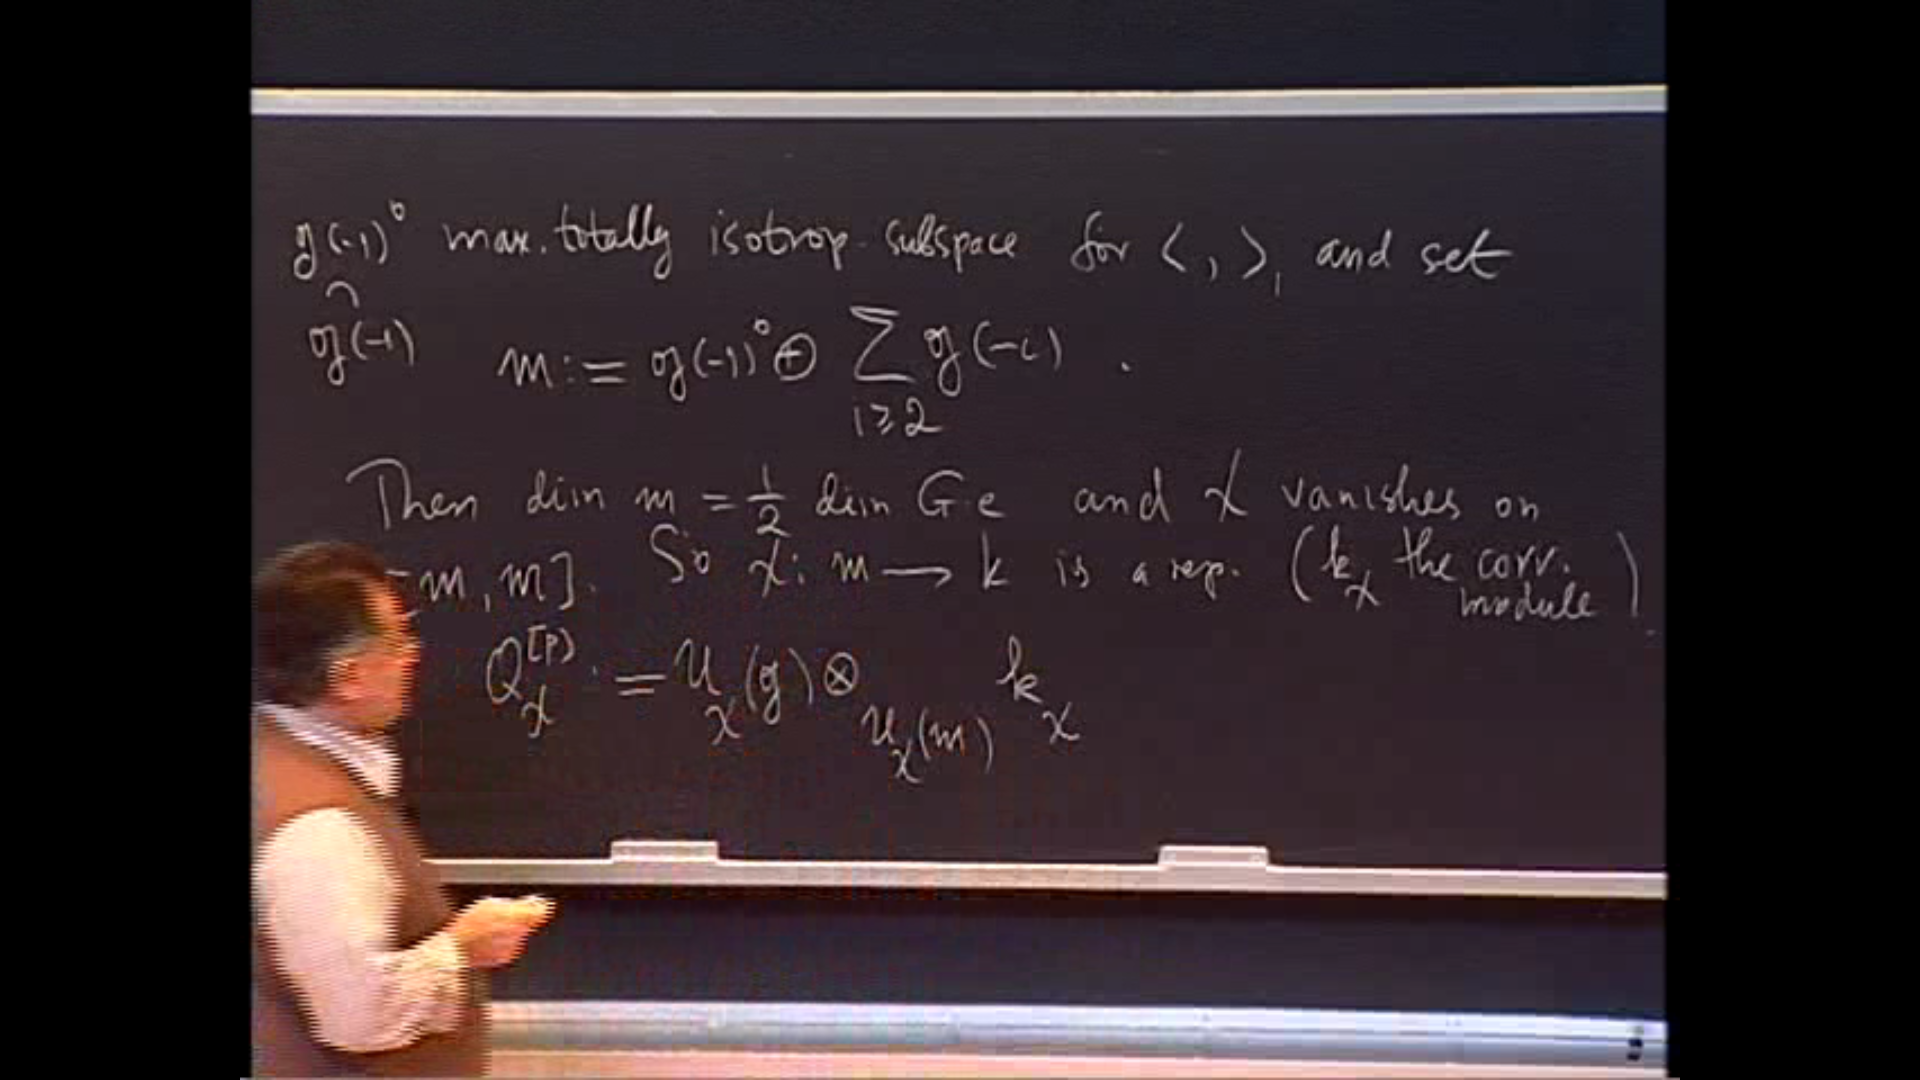 g(-1)⁰ max. totally isotrop. subspace for < , >, and set
∩
g(-1) m := g(-1)⁰ ⊕ ∑_{i≥2} g(-i).
Then dim m = 1/2 dim G·e and χ vanishes on
[m, m]. So χ: m → k is a rep. (k_χ the corr. module)
Q_χ^{[p]} = U_χ(g) ⊗_{U_χ(m)} k_χ